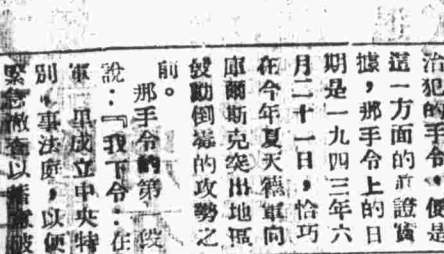 治犯的手令，便是
這一方面的新證實
據，那手令上的日
期是一九四三年六
月二十一日，恰巧
在今年夏天德軍向
庫爾斯克突出地區
發動倒霉的攻勢之
前。
那手令的第一段
說：『我下令：在
軍 里成立中央特
別 事法庭，以便
緊急